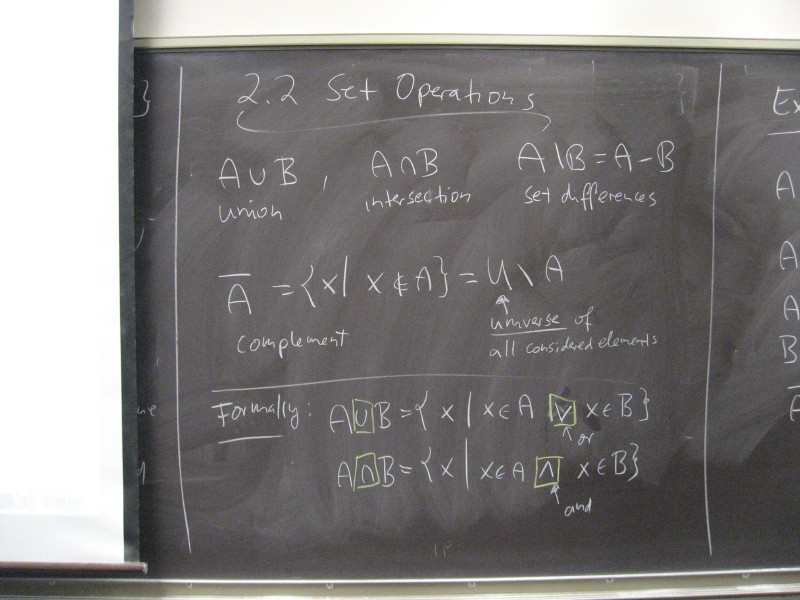 2.2 Set Operations
A∪B , A∩B A\B = A-B
union intersection set differences
A̅ = {x| x∉A} = U \ A
complement
universe of
all considered elements
Formally: A∪B = { x | x∈A ∨ x∈B }
or
A∩B = { x | x∈A ∧ x∈B }
and
Ex
A
A
A
B
A̅